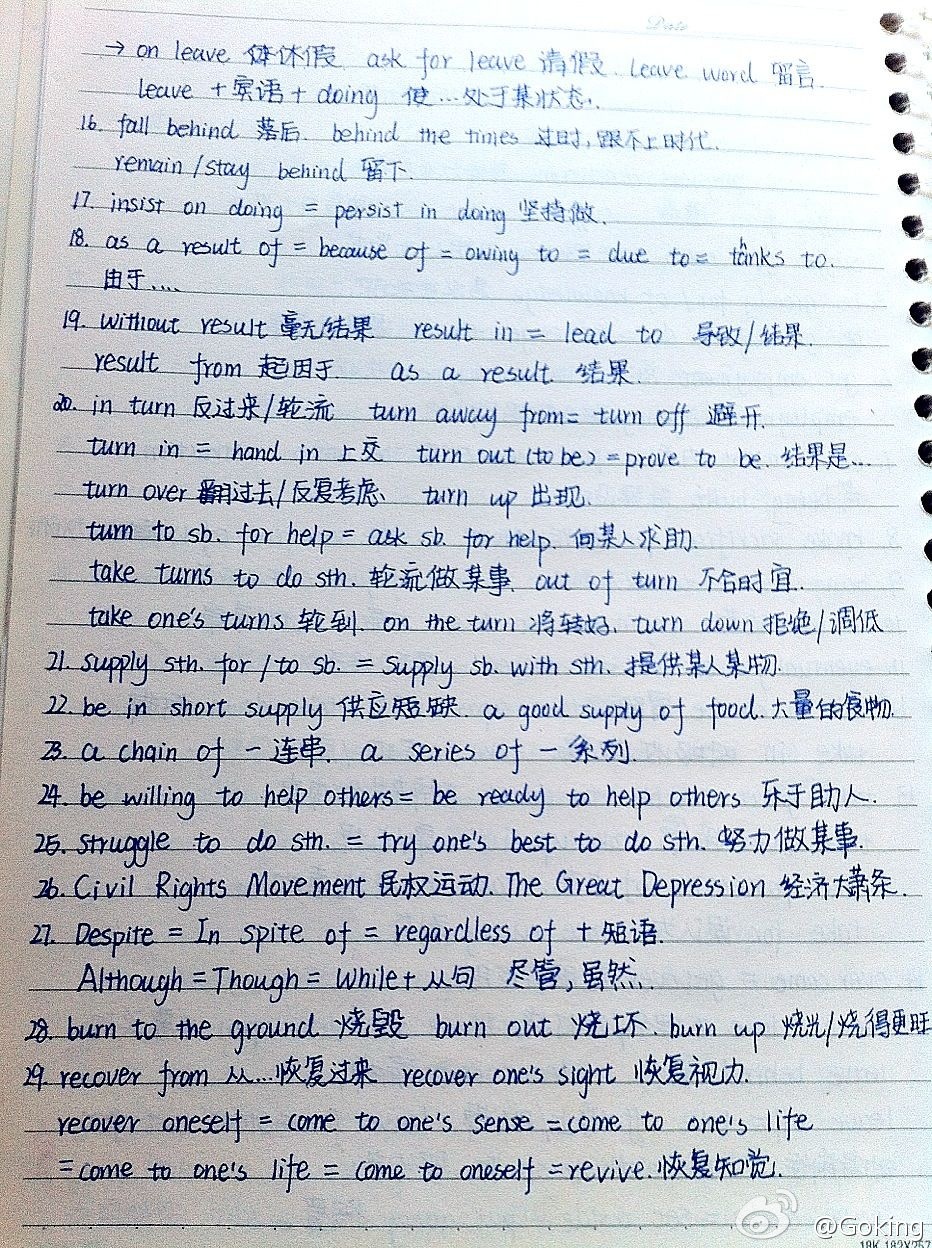 Date
→ on leave 休假. ask for leave 请假. Leave word 留言.
leave + 宾语 + doing 使...处于某状态.
16. fall behind 落后. behind the times 过时, 跟不上时代.
remain/stay behind 留下.
17. insist on doing = persist in doing 坚持做.
18. as a result of = because of = owing to = due to = thanks to.
由于....
19. without result 毫无结果 result in = lead to 导致/结果.
result from 起因于. as a result 结果.
20. in turn 反过来/轮流 turn away from = turn off 避开.
turn in = hand in 上交 turn out (to be) = prove to be. 结果是...
turn over 翻过去/反复考虑. turn up 出现.
turn to sb. for help = ask sb. for help. 向某人求助.
take turns to do sth. 轮流做某事. out of turn 不合时宜.
take one's turns 轮到. on the turn 将转好. turn down 拒绝/调低
21. supply sth. for/to sb. = supply sb. with sth. 提供某人某物.
22. be in short supply 供应短缺. a good supply of food. 大量的食物.
23. a chain of 一连串. a series of 一系列.
24. be willing to help others = be ready to help others 乐于助人.
25. struggle to do sth. = try one's best to do sth. 努力做某事.
26. Civil Rights Movement 民权运动. The Great Depression 经济大萧条.
27. Despite = In spite of = regardless of + 短语.
Although = Though = While + 从句 尽管, 虽然.
28. burn to the ground 烧毁 burn out 烧坏. burn up 烧光/烧得更旺
29. recover from 从...恢复过来 recover one's sight 恢复视力.
recover oneself = come to one's sense = come to one's life
= come to one's life = come to oneself = revive. 恢复知觉.
@Goking
18K 182X257